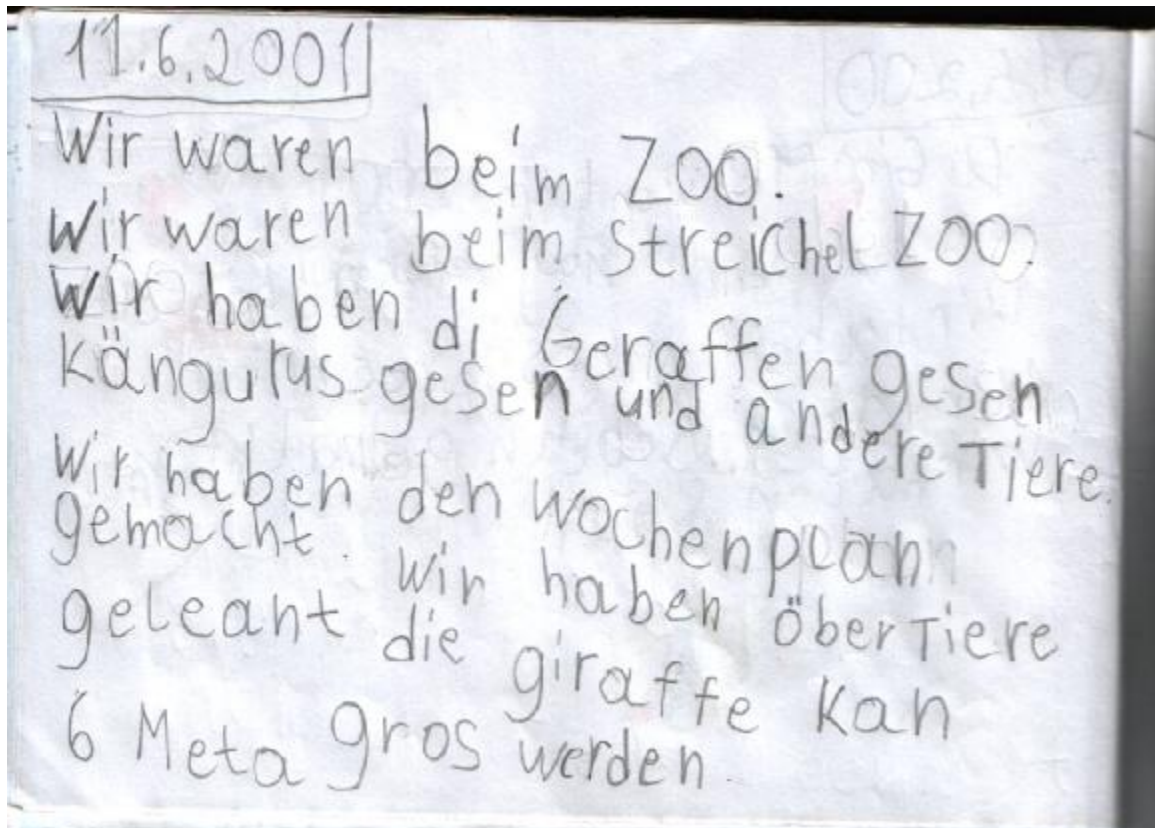 11.6.2001
Wir waren beim Zoo.
Wir waren beim streichel Zoo.
Wir haben di Geraffen gesen
Kängurus gesen und andere Tiere.
Wir haben den wochenplan
gemacht. Wir haben öber Tiere
geleant die giraffe kan
6 Meta gros werden